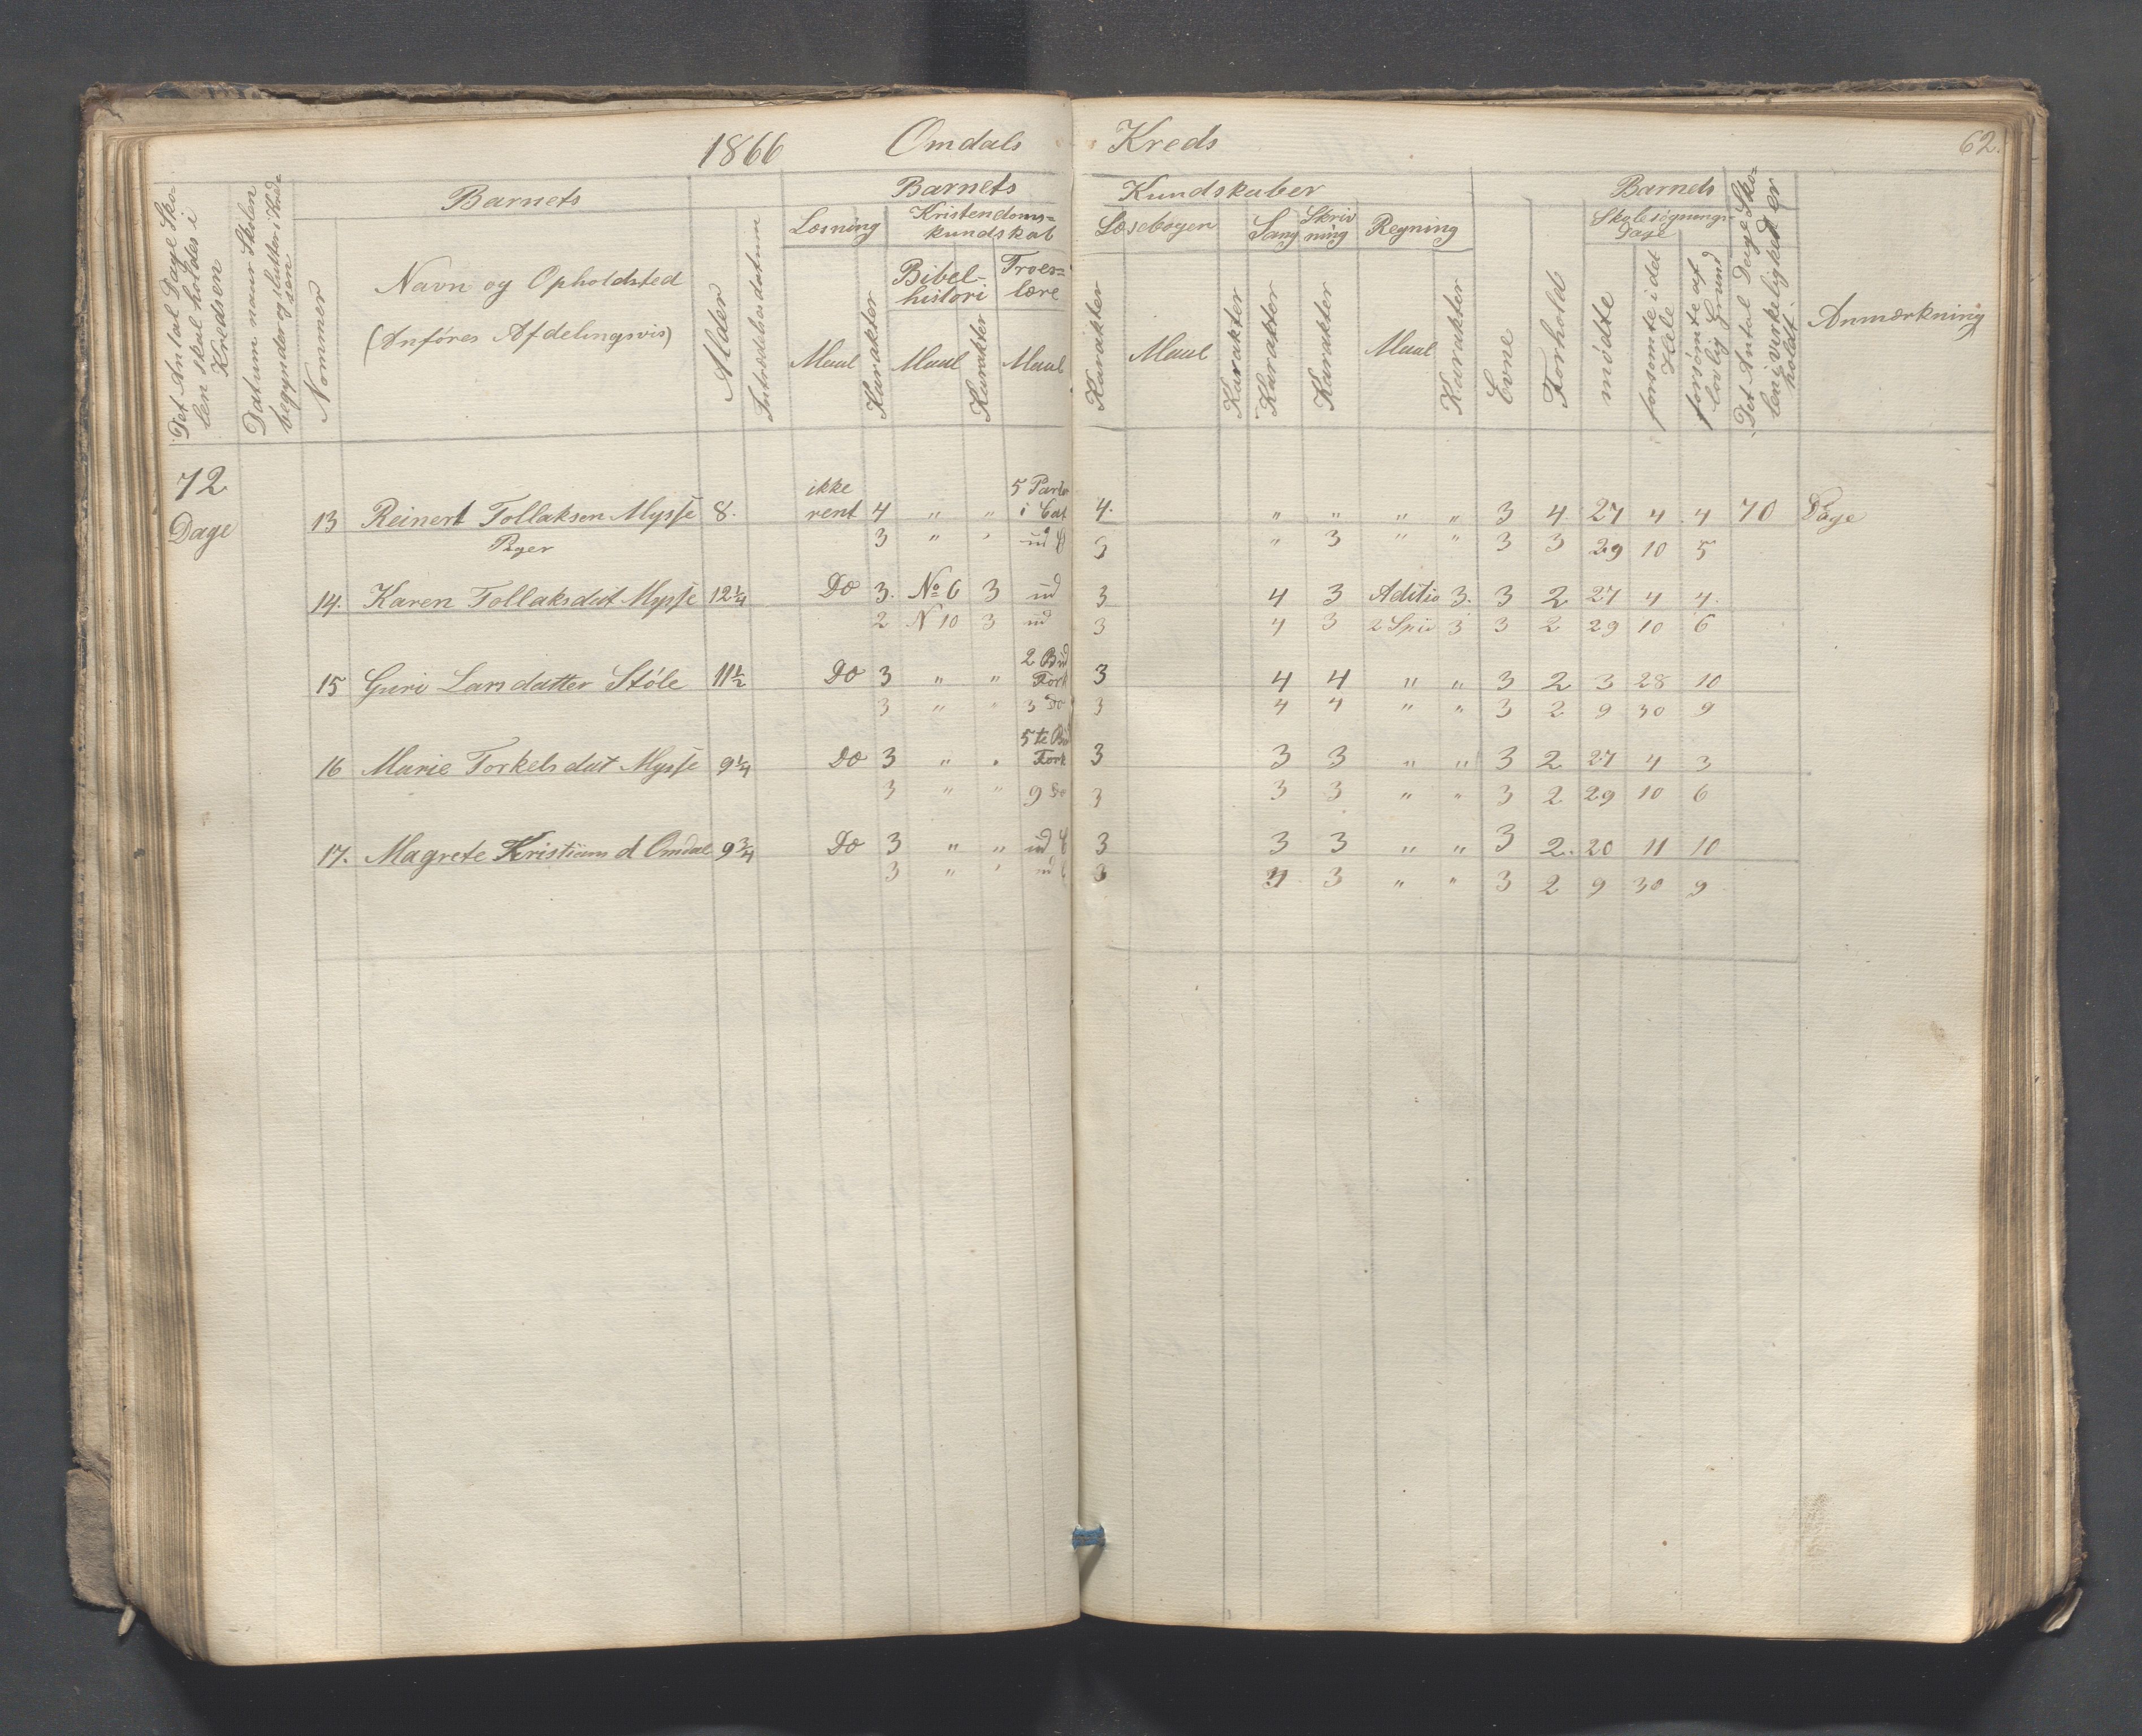 1866 Omdals Kreds 62.
Det Antal Dage Sko-
len skal holdes i
Kredsen
Datum naar Skolen
begynder og slutter i Kred-
sen
Nommer
Barnets
Navn og Opholdsted
(Anføres Afdelingsvis)
Alder
Indtrædelsesdatum
Barnets Kundskaber
Læsning
Maal
Karakter
Kristendoms-
kundskab
Bibel-
histori
Maal
Karakter
Troes-
lære
Maal
Karakter
Læsebogen
Maal
Karakter
Sang
Karakter
Skriv
ning
Karakter
Regning
Maal
Karakter
Evne
Forhold
Barnets
Skolesøgnings-
Dage
mødte
forsømte i det
Hele
forsømte af
lovlig Grund
Det Antal Dage Sko-
len i virkeligheden er
holdt
Anmærkning
72
Dage
ikke 5 Parter
13 Reinert Tollaksen Mysse 8. rent 4 " " i Cat 4. " " " " 3 4 27 4 4 70 Dage
Piger 3 " " ud 3 " 3 " " 3 3 29 10 5
14. Karen Tollaksdat Mysse 12¼ Do 3. No 6 3 ud 3 4 3 Aditio 3. 3 2 27 4 4.
2 N 10 3 ud 3 4 3 2 Spe 3 3 2 29 10 6
2 Bud
15 Guri Larsdatter Støle 11½ Do 3 " " Fork 3 4 4 " " 3 2 3 28 10
3 " " 3 Do 3 4 4 " " 3 2 9 30 9
5te Bud
16 Marie Torkelsdat Mysse 9¼ Do 3 " " Fork 3 3 3 " " 3 2 27 4 3
3 " " 9 Do 3 3 3 " " 3 2 29 10 6
17. Magrete Kristians d Omdal 9¾ Do 3 " " ud 3 3 3 " " 3 2. 20 11 10
3 " " ud 3 3 " " 3 2 9 30 9